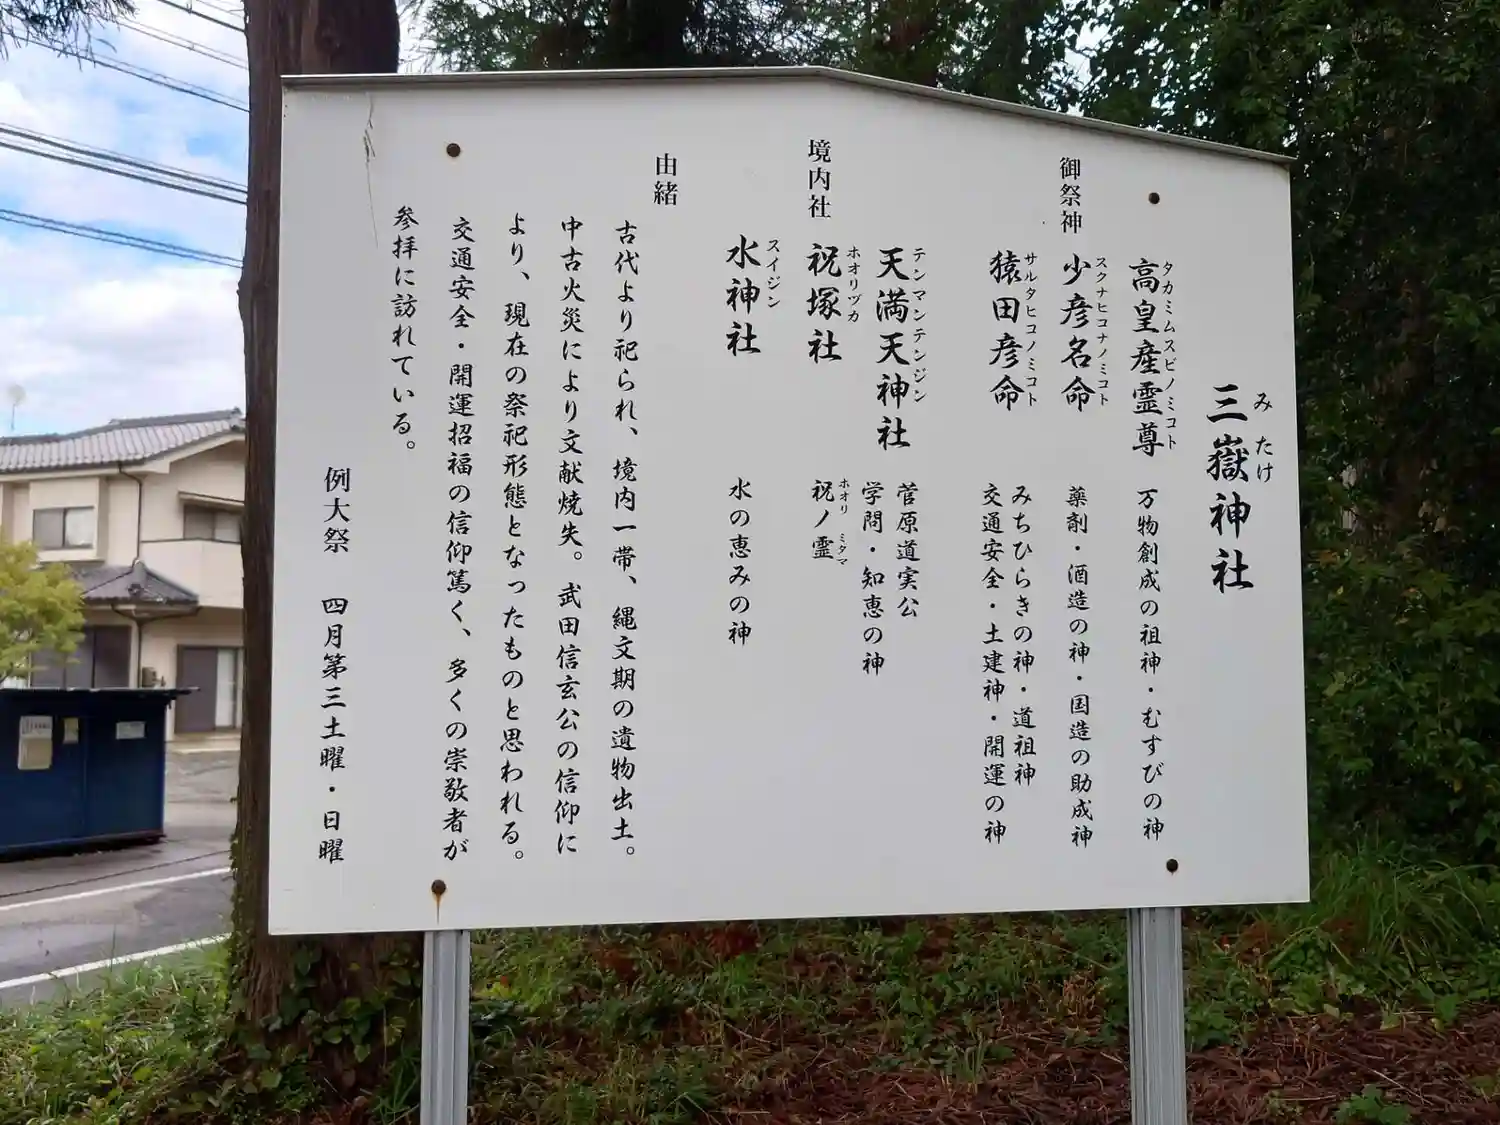 三嶽神社
みたけ
御祭神
高皇産霊尊 万物創成の祖神・むすびの神
タカミムスビノミコト
少彦名命 薬剤・酒造の神・国造の助成神
スクナヒコナノミコト
猿田彦命 みちひらきの神・道祖神
サルタヒコノミコト
交通安全・土建神・開運の神
境内社
天満天神社 菅原道実公
テンマンテンジン
学問・知恵の神
祝塚社 祝ノ霊
ホオリヅカ
ホオリ ミタマ
水神社 水の恵みの神
スイジン
由緒
古代より祀られ、境内一帯、縄文期の遺物出土。
中古火災により文献焼失。武田信玄公の信仰に
より、現在の祭祀形態となったものと思われる。
交通安全・開運招福の信仰篤く、多くの崇敬者が
参拝に訪れている。
例大祭 四月第三土曜・日曜